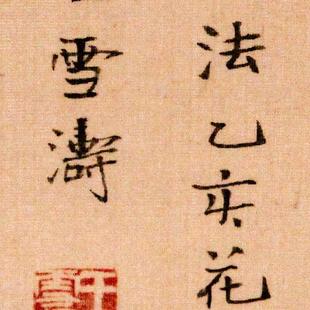 法乙亥花
雪濤